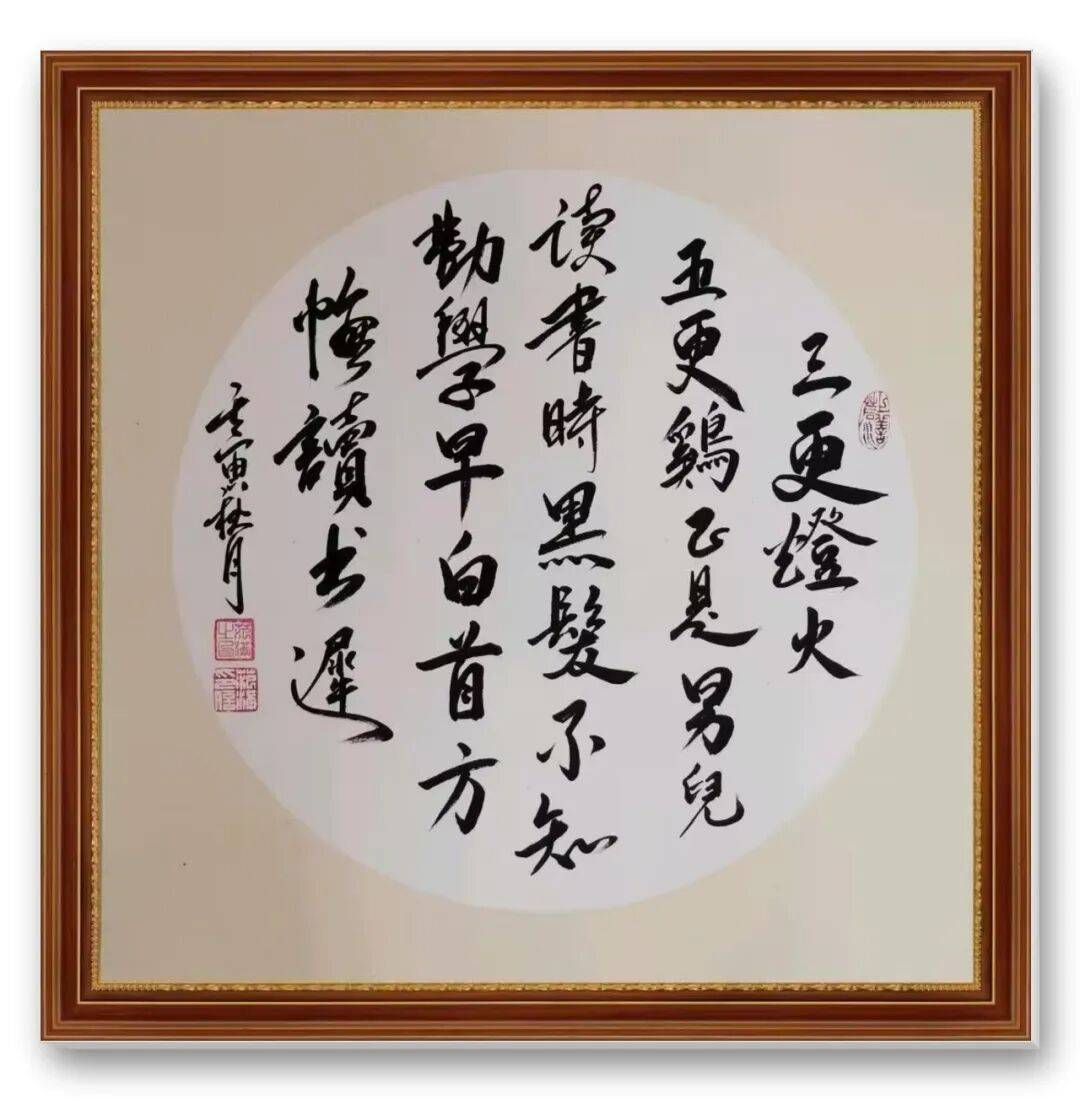 三更燈火
五更鷄正是男兒
读書時黑髮不知
勸學早白首方
悔讀书遲
壬寅秋月
上善若水